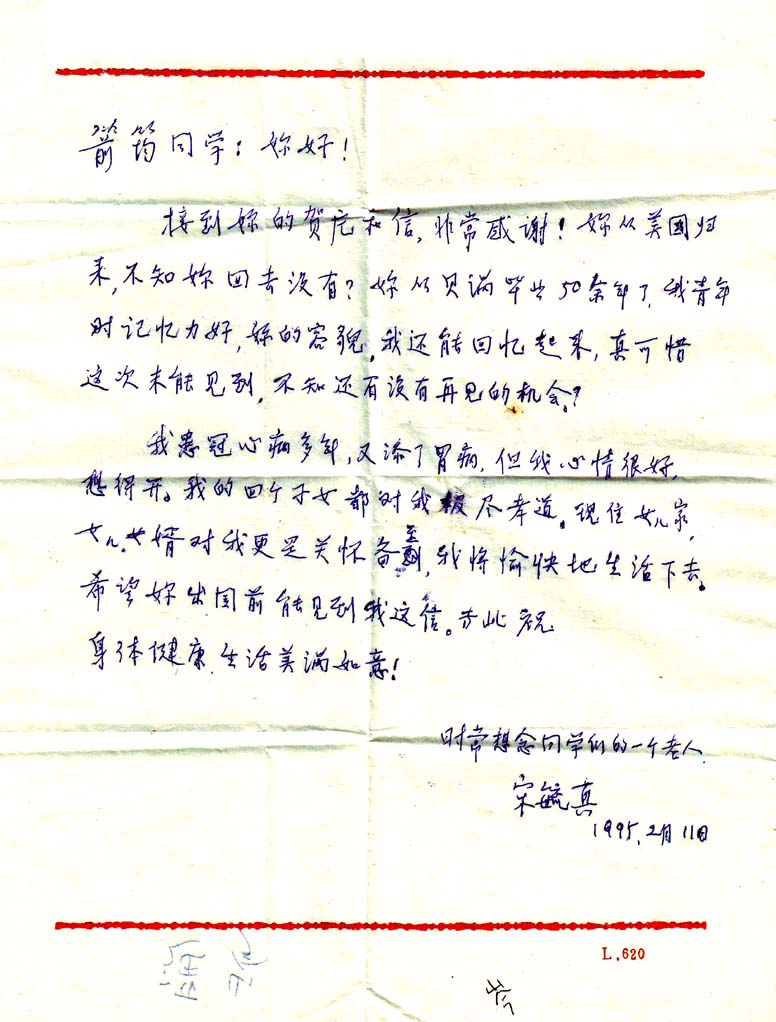 箭筠同学：妳好！
接到妳的贺片和信，非常感谢！妳从美国归
来，不知妳回去没有？妳从贝满毕业50余年了，我青年
时记忆力好，妳的容貌，我还能回忆起来，真可惜
这次未能见到，不知还有没有再见的机会？
我患冠心病多年，又添了胃病，但我心情很好，
想得开。我的四个子女都对我极尽孝道。现住女儿家，
女儿、女婿对我更是关怀备至，我将愉快地生活下去。
希望妳出国前能见到我这信。专此祝
身体健康，生活美满如意！
时常想念同学们的一个老人
宋毓真
1995.2月11日
L.620